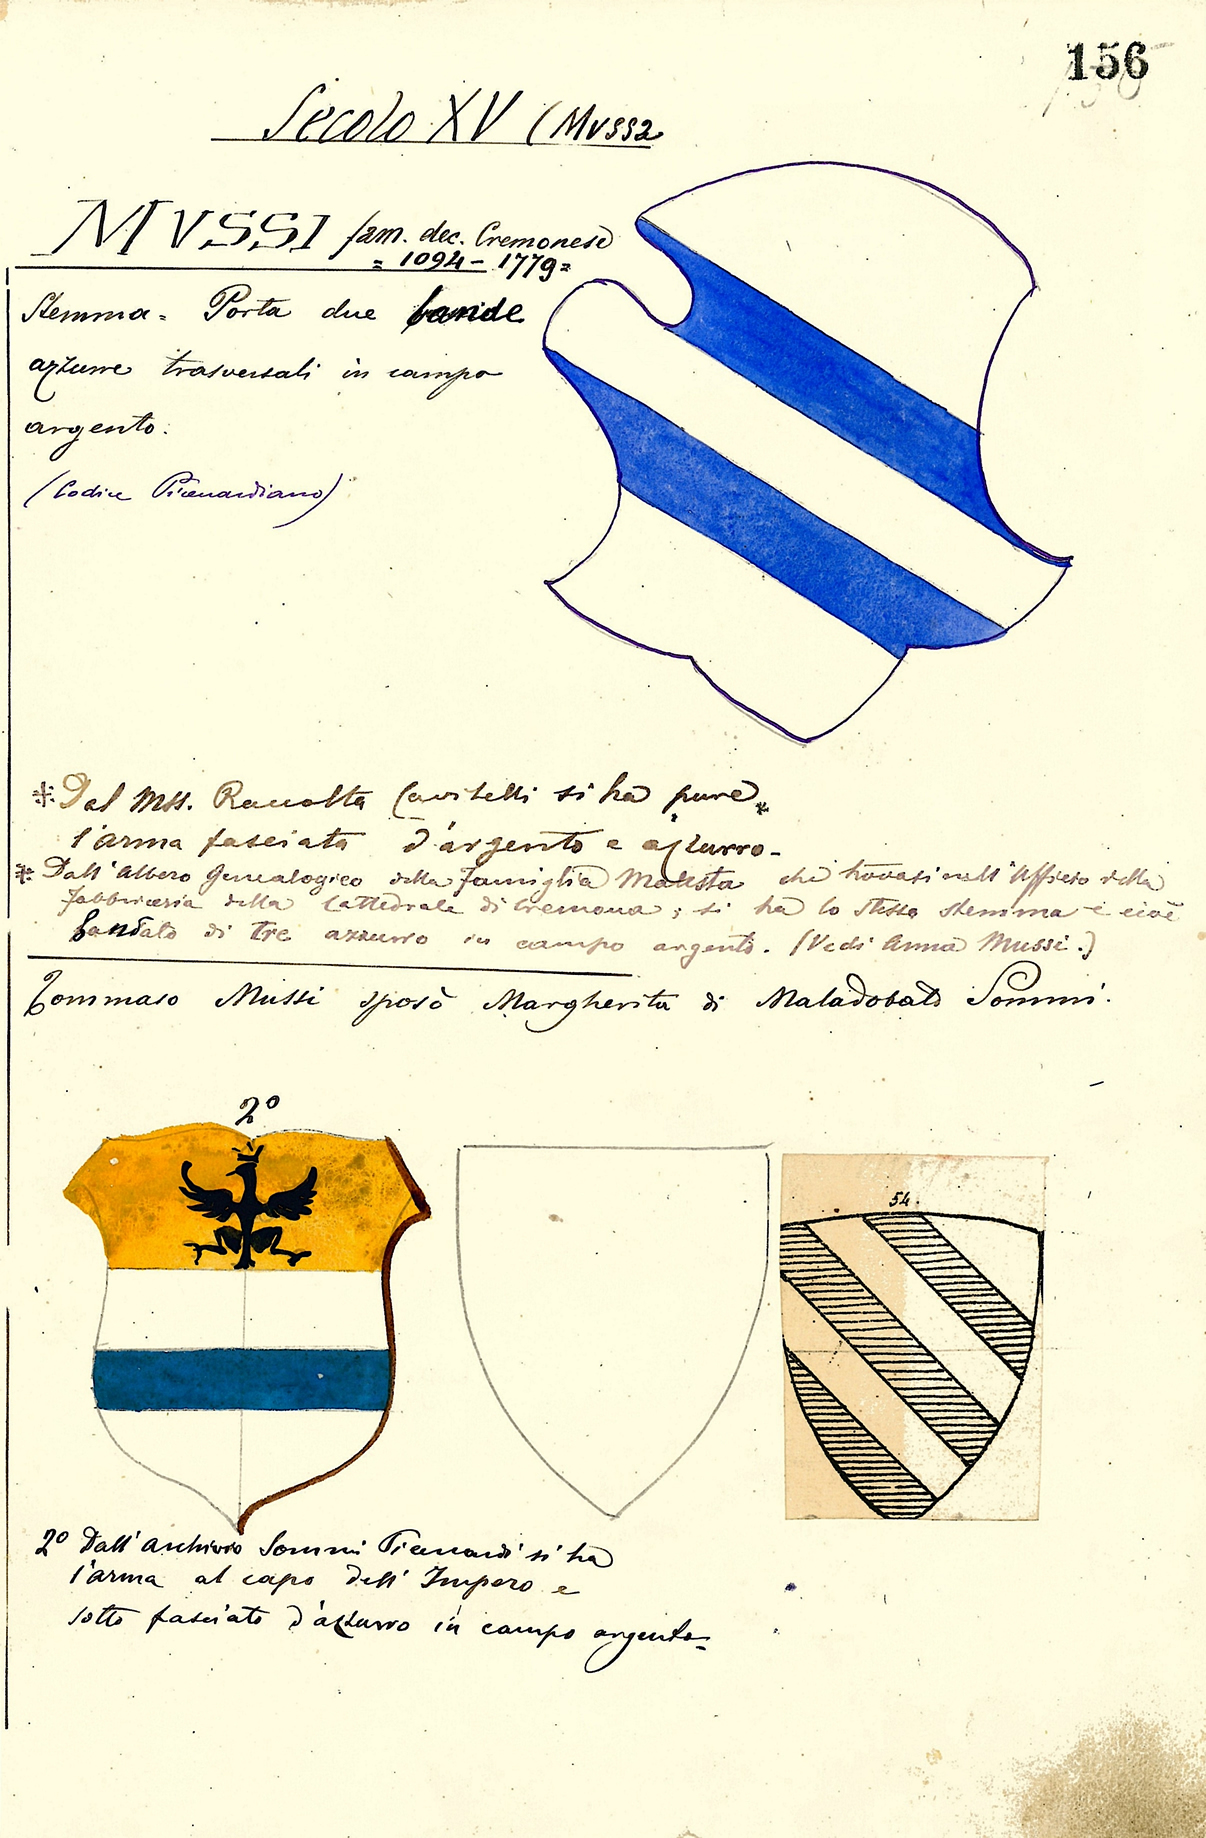 156
Secolo XV (Mussa
MVSSI fam. dec. Cremonese
= 1094 - 1779 =
Stemma = Porta due bande
azzurre trasversali in campo
argento.
(Codice Picenardiano)
* Dal Mss. Raccolta Cavitelli si ha pure *
l'arma fasciata d'argento e azzurro -
* Dall'Albero Genealogico della famiglia che trovasi nell'Ufficio della
Fabbriceria della Cattedrale di Cremona; si ha lo stesso stemma e cioè
bandato di tre azzurro in campo argento. (Vedi Anna Mussi.)
Tommaso Mussi sposò Margherita di Maladobato Sommi.
2º
54.
2º Dall'archivio Sommi Picenardi si ha
l'arma al capo dell'Impero e
sotto fasciato d'azzurro in campo argento =